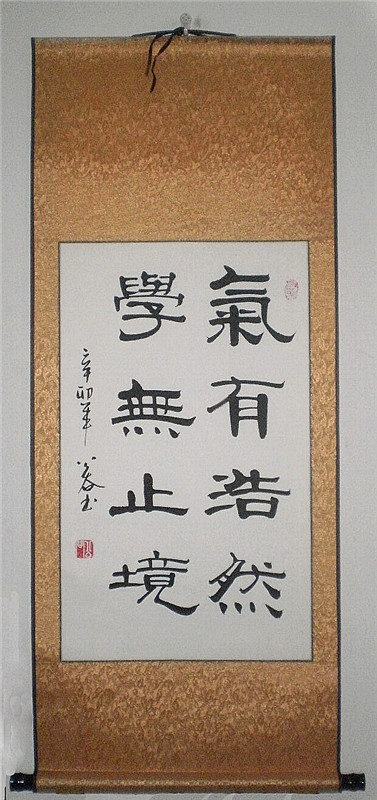 氣有浩然
學無止境
辛卯年
書